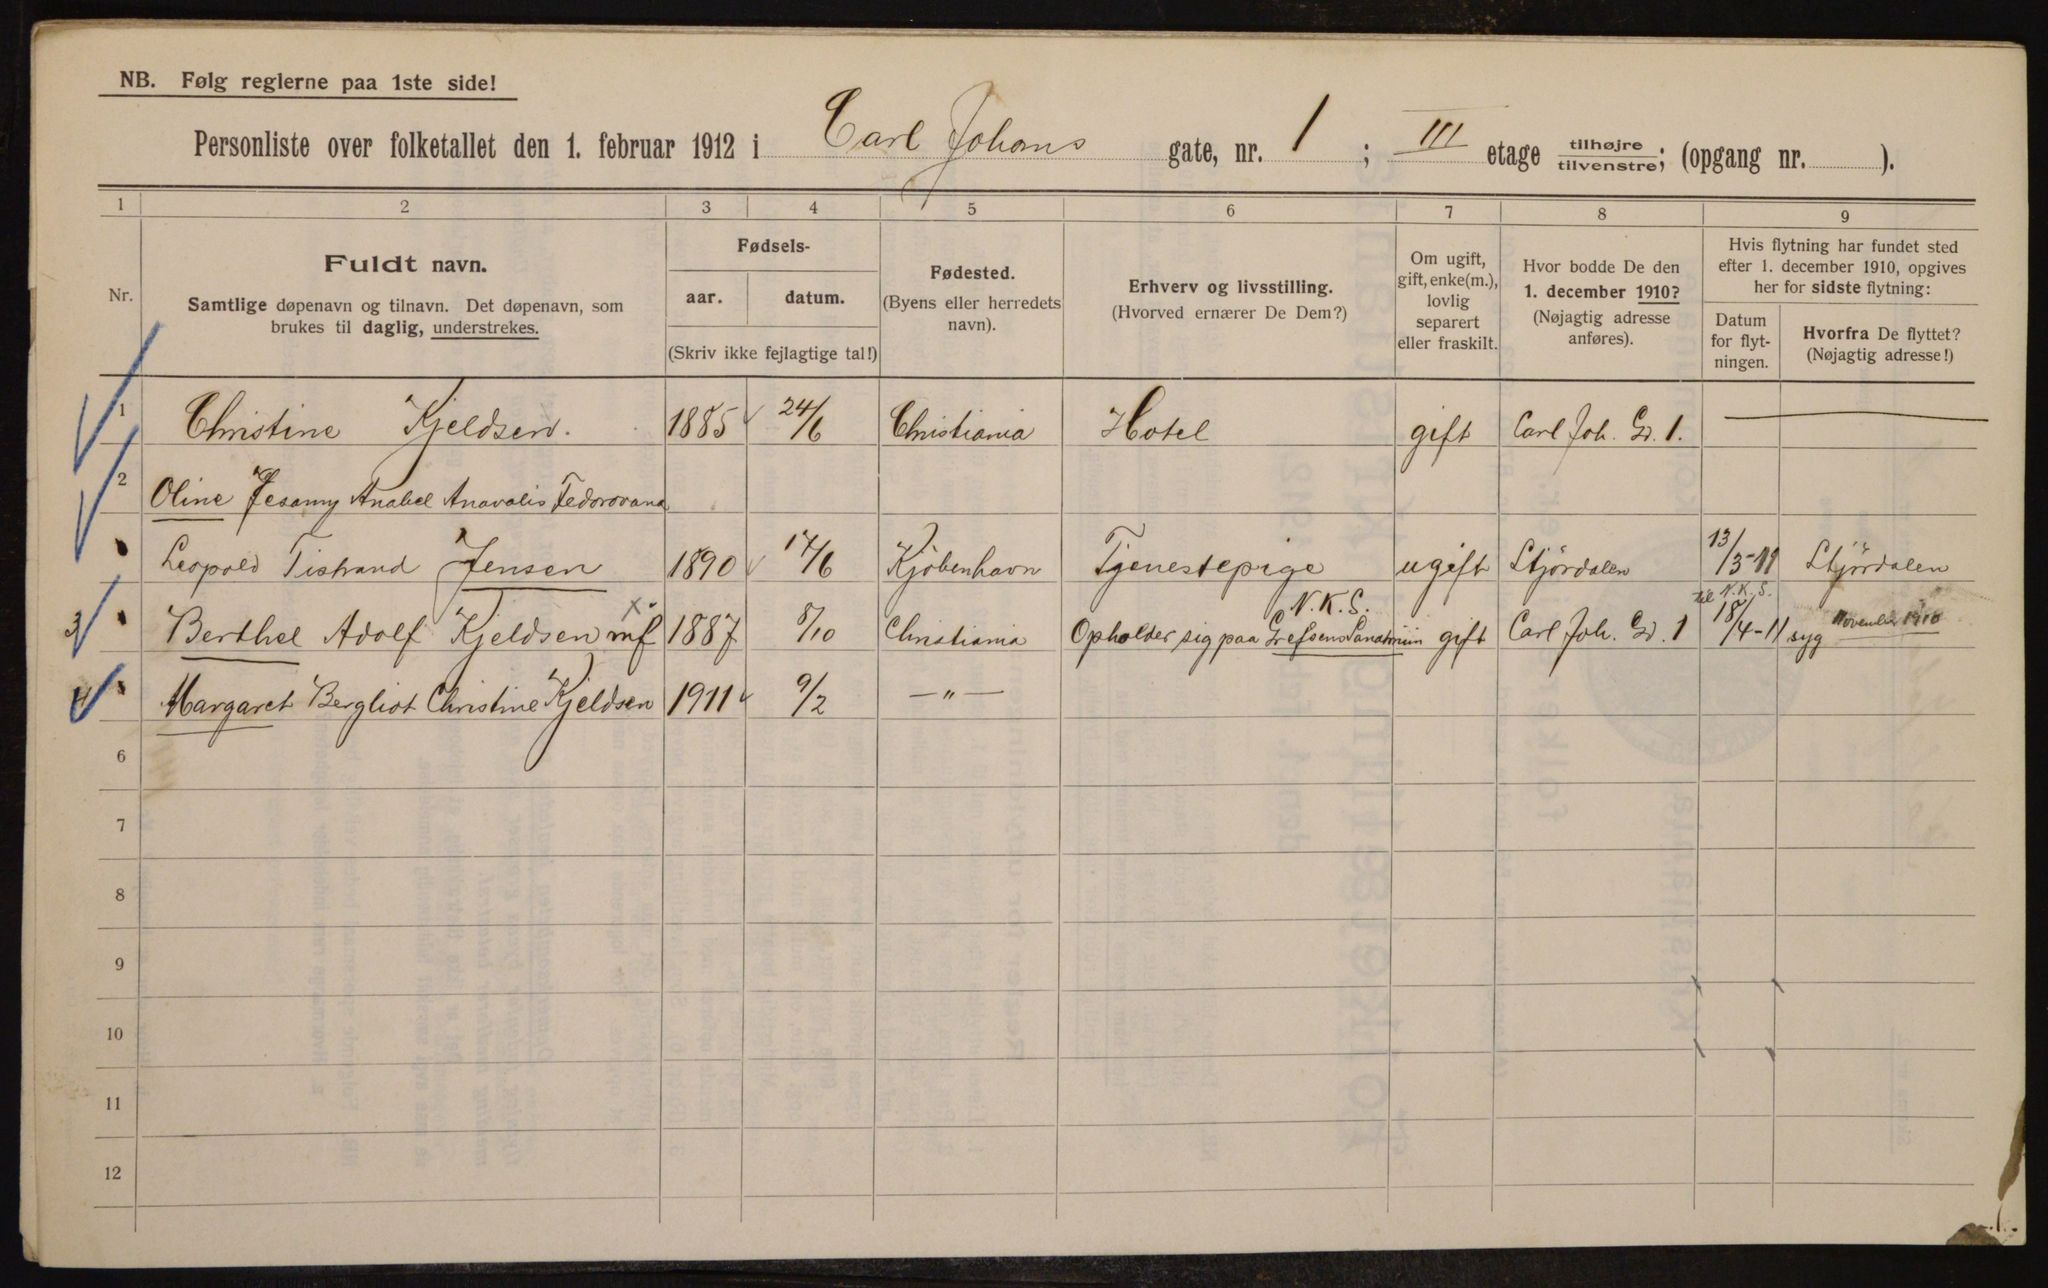 NB. Følg reglerne paa 1ste side!
Personliste over folketallet den 1. februar 1912 i Carl Johans gate, nr. 1; III etage tilhøjre/tilvenstre; (opgang nr. ).
1 2 3 4 5 6 7 8 9
Nr.
Fuldt navn.
Samtlige døpenavn og tilnavn. Det døpenavn, som
brukes til daglig, understrekes.
Fødsels-
aar. datum.
(Skriv ikke fejlagtige tal!)
Fødested.
(Byens eller herredets
navn).
Erhverv og livsstilling.
(Hvorved ernærer De Dem?)
Om ugift,
gift, enke(m.),
lovlig
separert
eller fraskilt.
Hvor bodde De den
1. december 1910?
(Nøjagtig adresse
anføres).
Hvis flytning har fundet sted
efter 1. december 1910, opgives
her for sidste flytning:
Datum
for flyt-
ningen.
Hvorfra De flyttet?
(Nøjagtig adresse!)
1 Christine Kjeldsen. 1885 24/6 Christiania Hotel gift Carl Joh. Gd. 1.
2 Oline Jesamy Anabel Anavalis Fedorovana
Leopold Tistrand Jensen 1890 17/6 Kjöbenhavn Tjenestepige ugift Stjördalen 13/3-11 Stjördalen
N.K.S. til N.K.S.
3 Berthel Adolf Kjeldsen mf 1887 8/10 Christiania Opholder sig paa Grefsens Sanatorium gift Carl Joh. Gd. 1 18/4-11 syg November 1910
4 Margaret Bergliot Christine Kjeldsen 1911 9/2 —"—
6
7
8
9
10
11
12